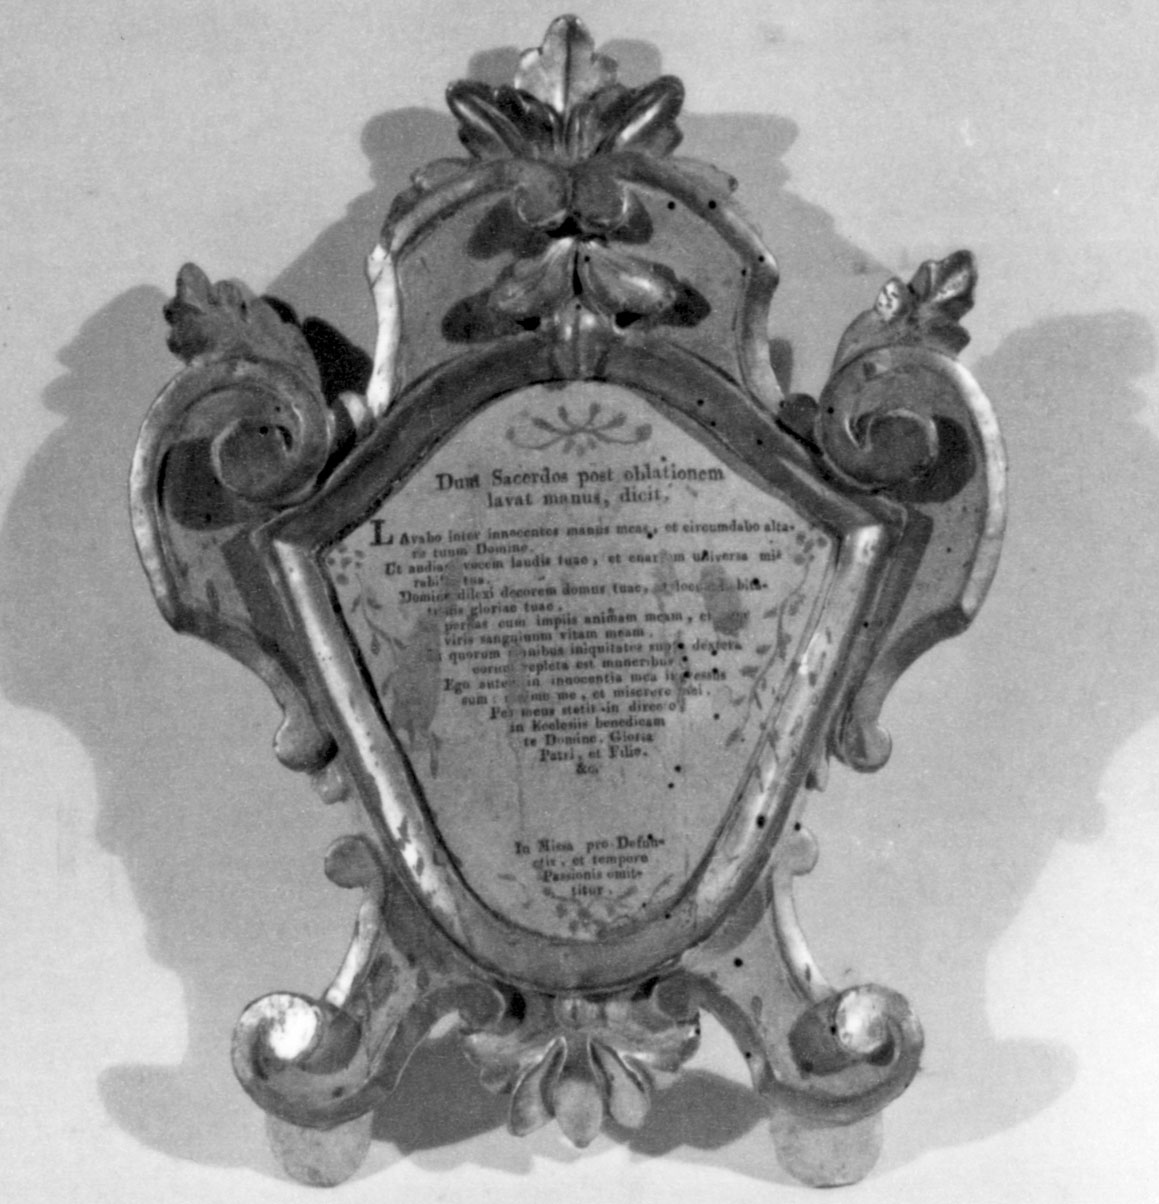 Dum Sacerdos post oblationem
lavat manus, dicit.
LAvabo inter innocentes manus meas, et circumdabo alta-
re tuum Domine.
Ut audiam vocem laudis tuae, et enarrem universa mi-
rabilia tua.
Domine dilexi decorem domus tuae, et locum habita-
tionis gloriae tuae.
perdas cum impiis animam meam, et cum
viris sanguinum vitam meam.
In quorum manibus iniquitates sunt dextera
eorum repleta est muneribus.
Ego autem in innocentia mea ingressus
sum: redime me, et miserere mei.
Pes meus stetit in directo,
in Ecclesiis benedicam
te Domine. Gloria
Patri, et Filio.
&c.
In Missa pro Defun-
ctis, et tempore
Passionis omit-
titur.